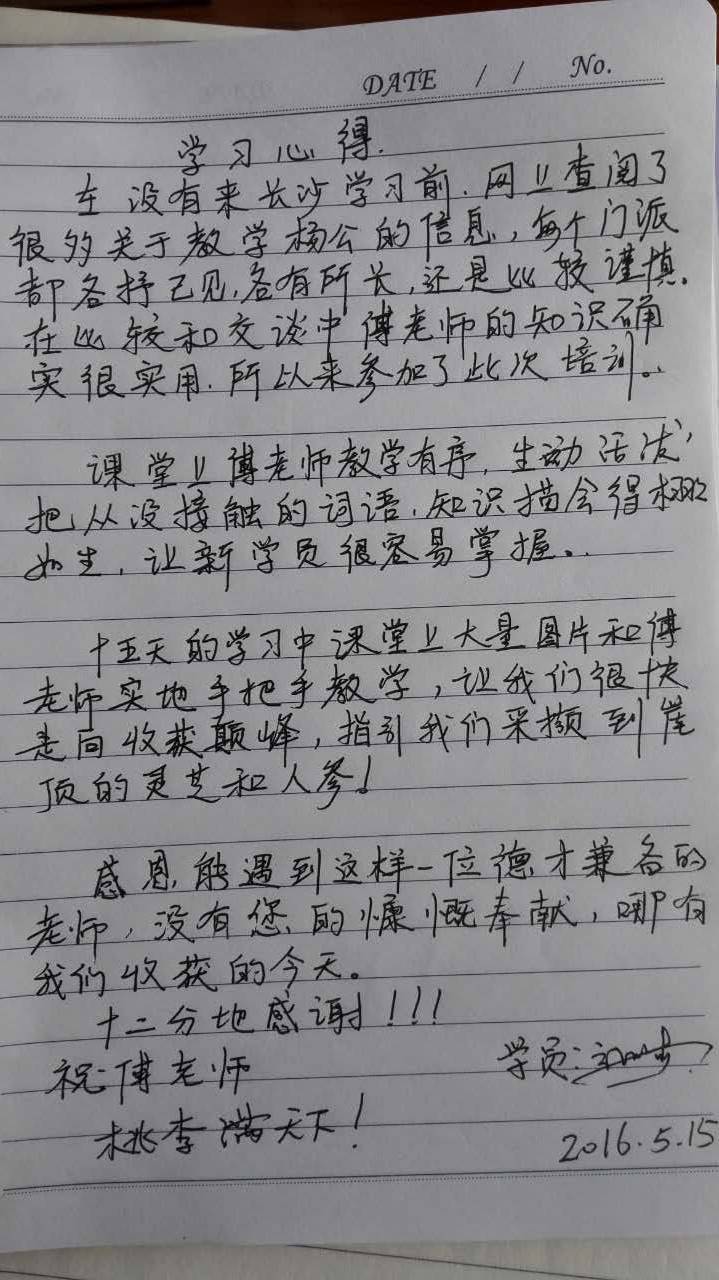 DATE / / No.
学习心得.
在没有来长沙学习前.网上查阅了
很多关于教学杨公的信息,每个门派
都各抒己见,各有所长,还是比较谨慎.
在比较和交谈中傅老师的知识确
实很实用.所以来参加了此次培训。
课堂上傅老师教学有序,生动活泼,
把从没接触的词语,知识描绘得栩栩
如生,让新学员很容易掌握。
十五天的学习中课堂上大量图片和傅
老师实地手把手教学,让我们很快
走向收获颠峰,指引我们采撷到崖
顶的灵芝和人参!
感恩,能遇到这样一位德才兼备的
老师,没有您的慷慨奉献,哪有
我们收获的今天。
十二分地感谢!!!
祝:傅老师
学员:
桃李满天下!
2016.5.15